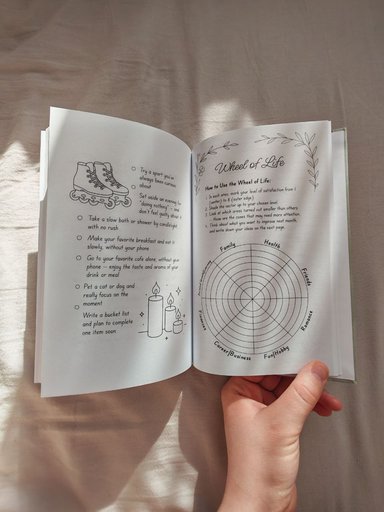 Try a sport you've
always been curious
about
Set aside an evening for
"doing nothing" — and
don't feel guilty about it
Take a slow bath or shower by candlelight
with no rush
Make your favorite breakfast and eat it
slowly, without your phone
Go to your favorite cafe alone, without your
phone — enjoy the taste and aroma of your
drink or meal
Pet a cat or dog and
really focus on the
moment
Write a bucket list
and plan to complete
one item soon
Wheel of Life
How to Use the Wheel of Life:
1. In each area, mark your level of satisfaction from 1
(center) to 10 (outer edge).
2. Shade the sector up to your chosen level.
3. Look at which areas turned out smaller than others
these are the zones that may need more attention.
Think about what you want to improve next month,
and write down your ideas on the next page.
Family
Health
Friends
Romance
Fun/Hobby
Career/Business